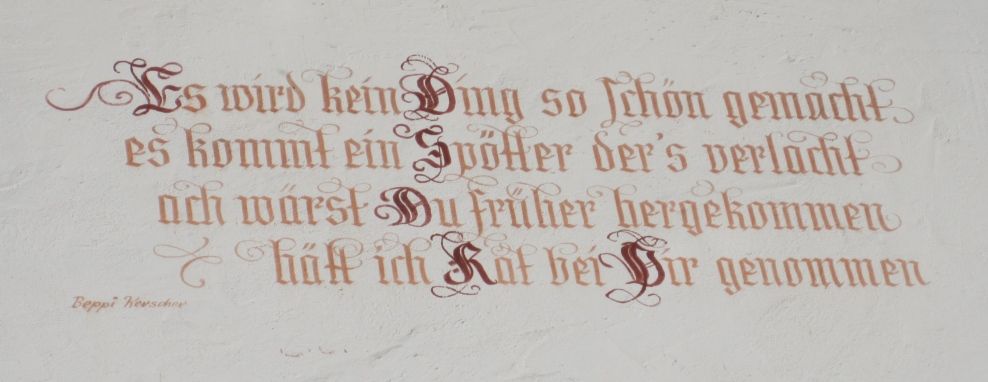 Es wird kein Ding so schön gemacht
es kommt ein Spötter der's verlacht
ach wärst Du früher hergekommen
hätt ich Rat bei Dir genommen
Beppi Kerscher